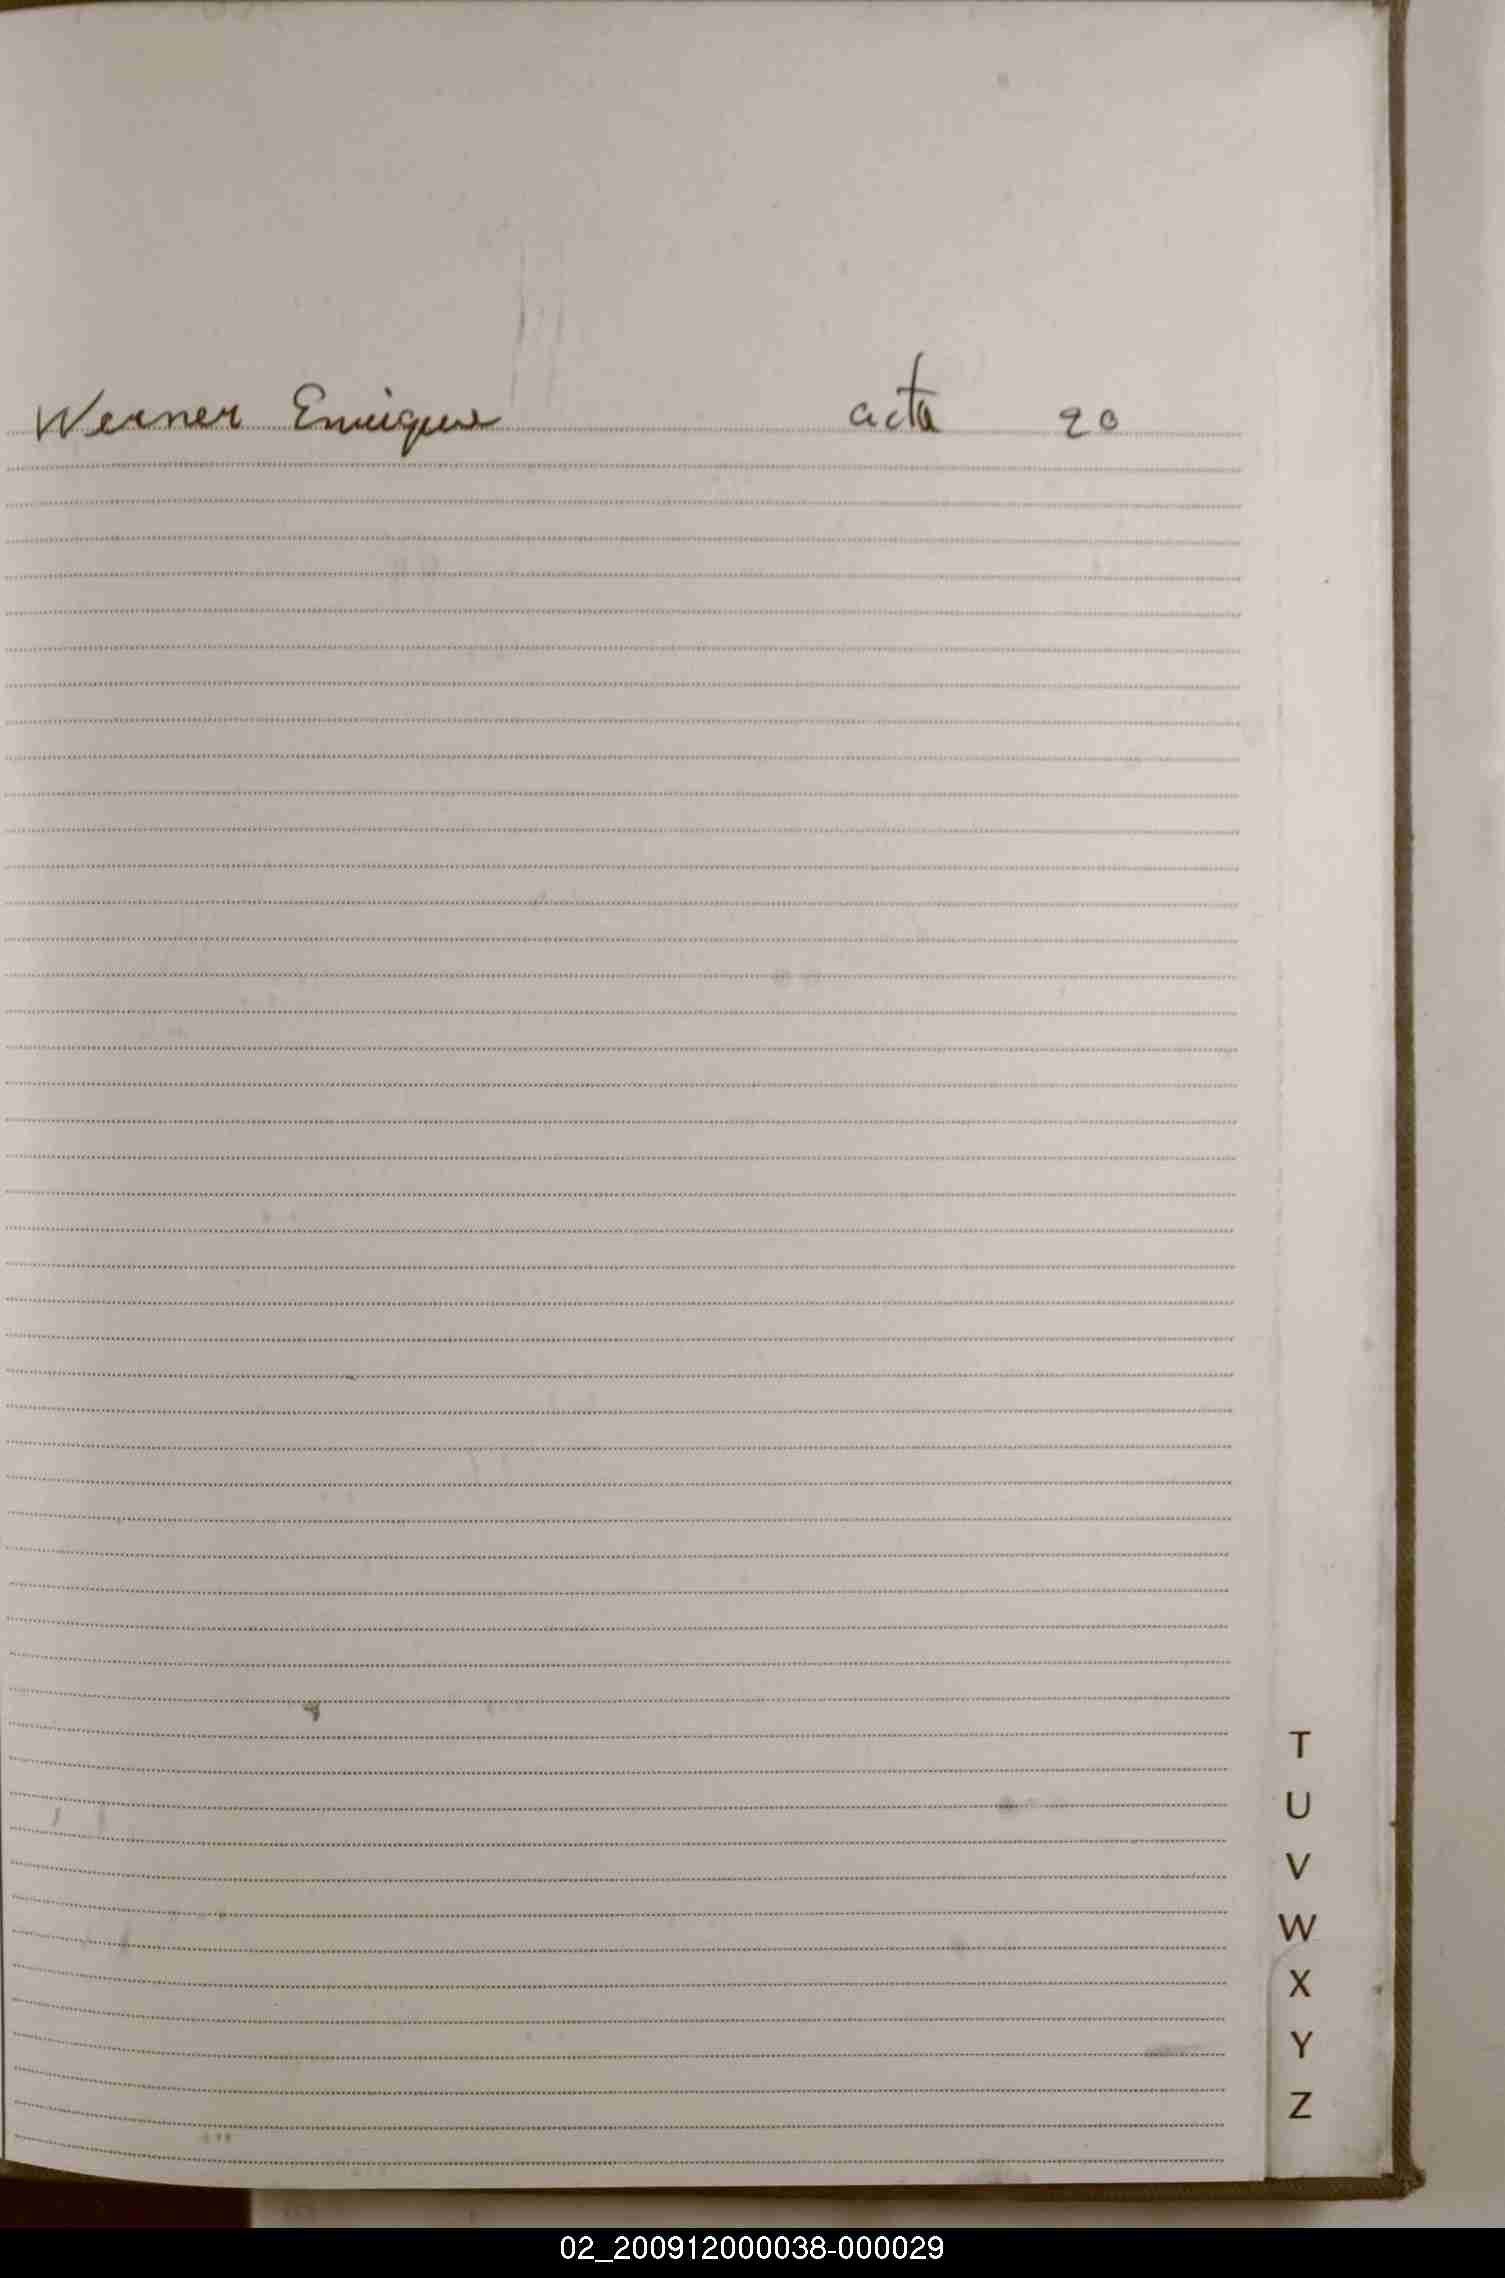 Werner Enrique acta 20
T
U
V
W
X
Y
Z
02_200912000038-000029